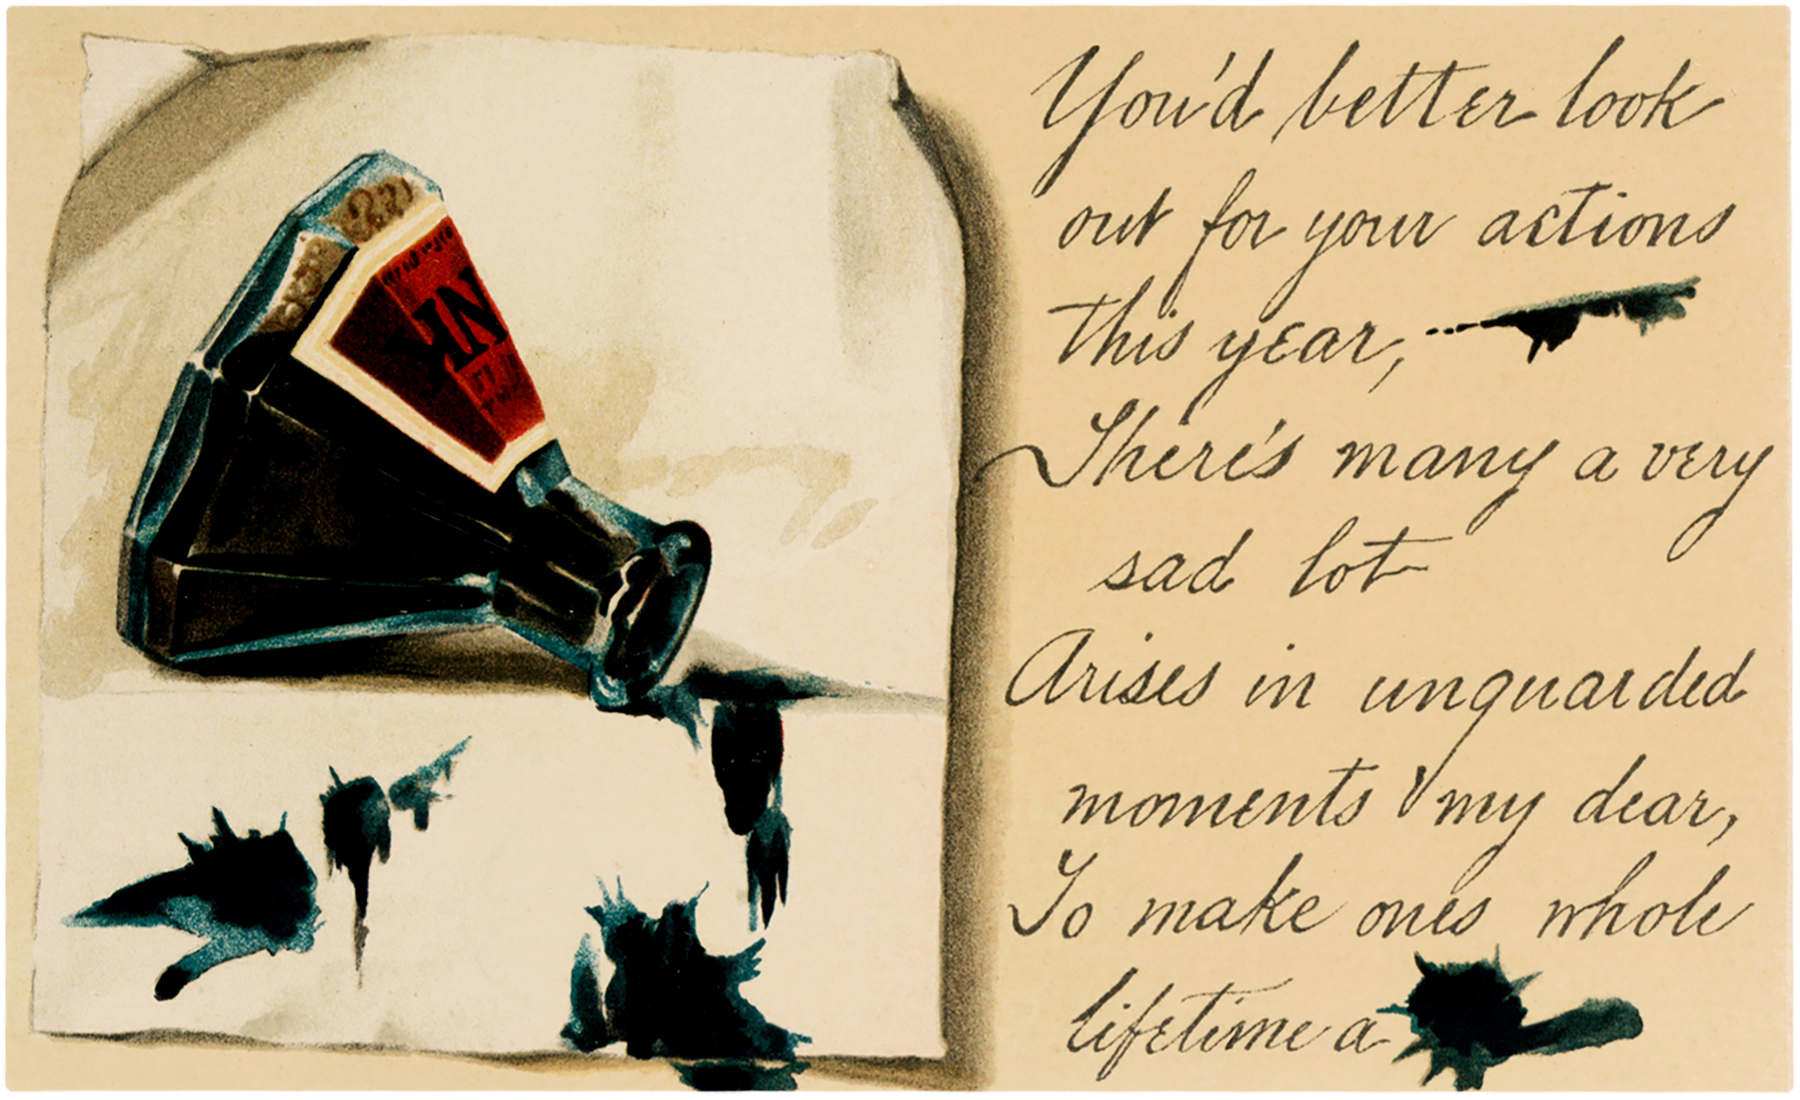 NK
You'd better look
out for your actions
this year,
There's many a very
sad lot
Arises in unguarded
moments my dear,
To make ones whole
lifetime a